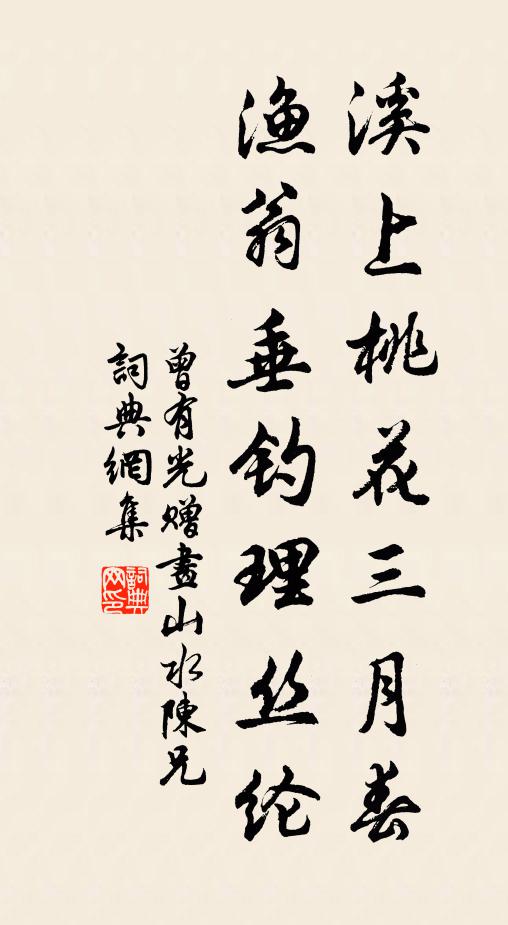 溪上桃花三月春
渔翁垂钓理丝纶
曾有光赠畫山水陳兄
詞典網集
詞典网印